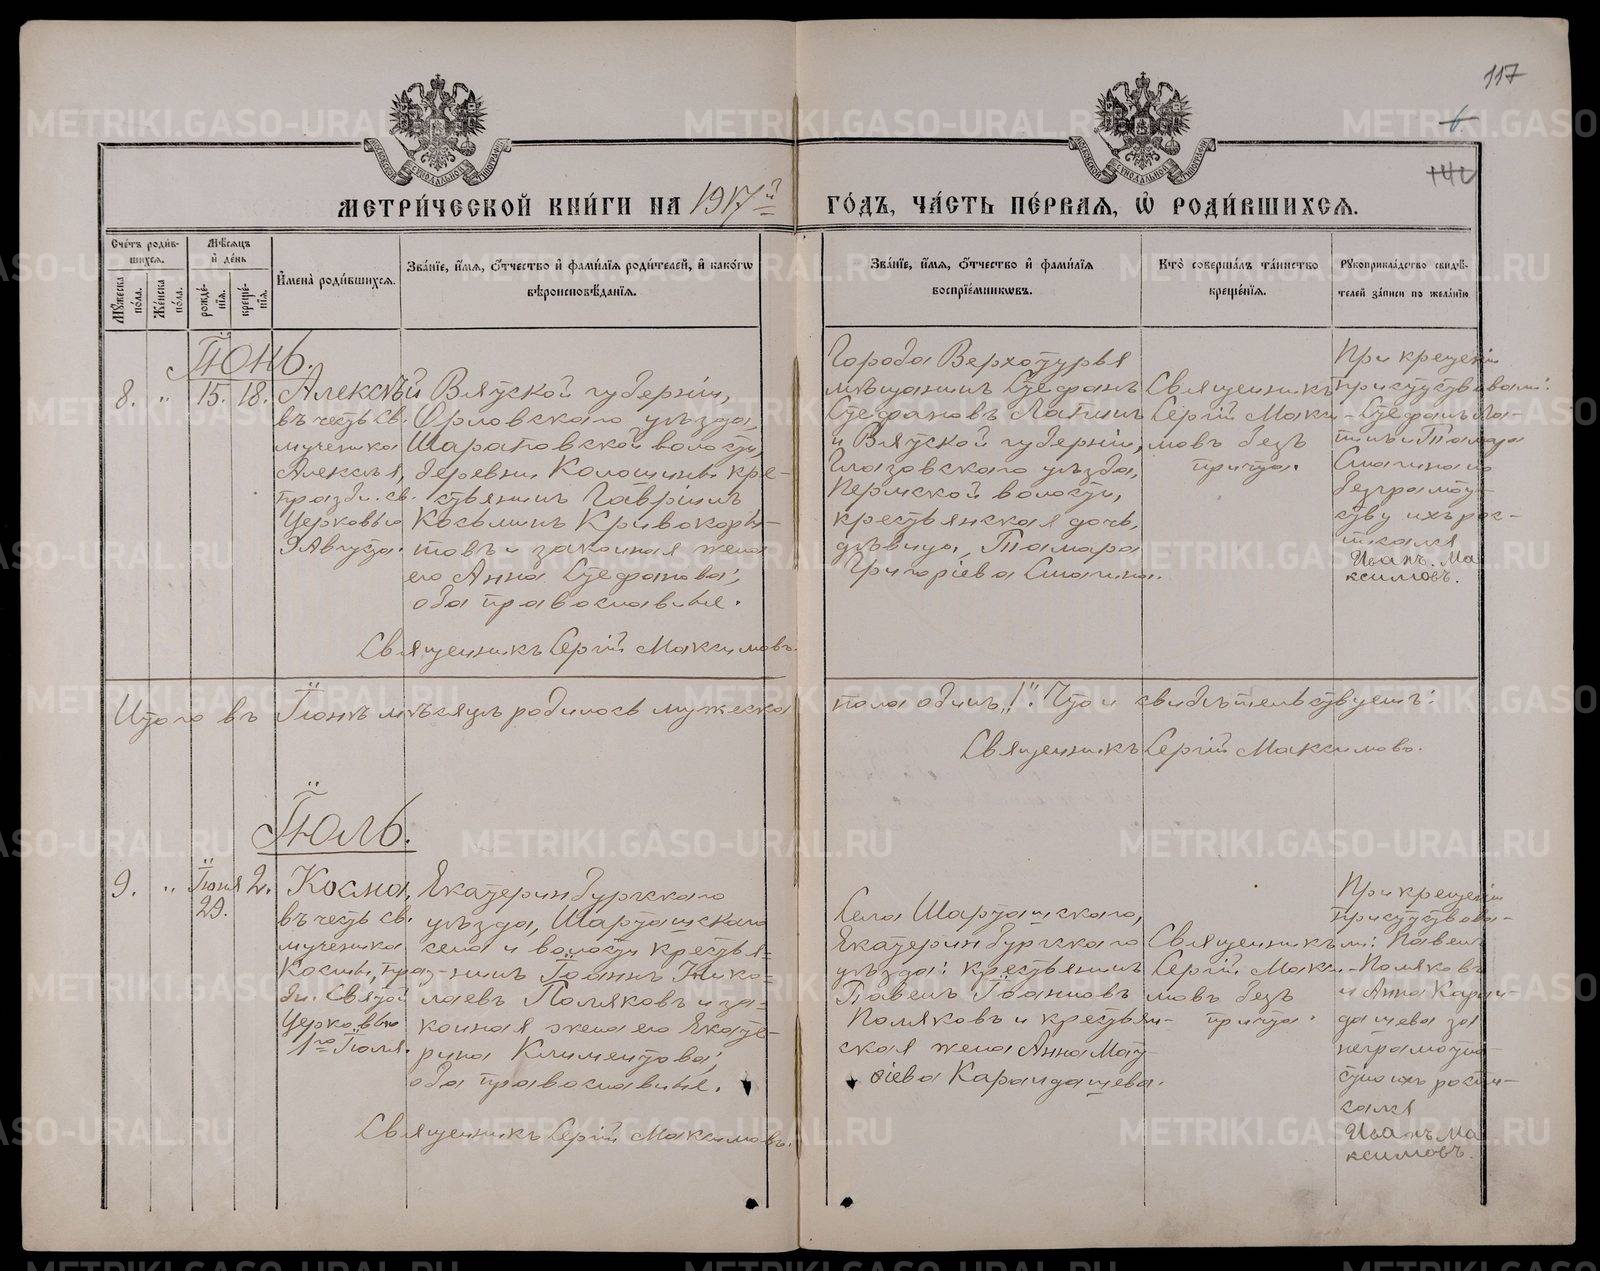 117
6.
МЕТРИ́ЧЕСКОЙ КНИ́ГИ НА 1917й ГО́ДЪ, ЧА́СТЬ ПЕ́РВАЯ, Ѡ҆ РОДИ́ВШИХСЯ.
Сче́тъ роди́в-
шихся.
Мꙋ́жеска по́ла.
Же́нска по́ла.
Мѣ́сяцъ
и҆ де́нь
рожде́-
нїя.
креще́-
нїя.
И҆мена̀ роди́вшихся.
Зва́нїе, и҆́мя, ѻ҆́тчество и҆ фами́лїя роди́телей, и҆ како́гѡ
вѣроисповѣ́данїя.
Зва́нїе, и҆́мя, ѻ҆́тчество и҆ фами́лїя
воспрїе́мникѡвъ.
Кто̀ соверша́лъ та́инство
креще́нїя.
Рꙋкоприкла́дство свидѣ́-
телей за́писи по жела́нїю
Іюнь.
8. " 15. 18.
Алексѣй
въ честь св.
мученика
Алексѣя,
праздн. св.
Церковью
9 Августа.
Вятской губерніи,
Орловскаго уѣзда,
Шараповской волости,
деревни кре-
стьянинъ Гавріилъ
Косьминъ Кривокоры-
товъ и законная жена
его Анна Стефанова;
оба православные.
Священникъ Сергій Максимовъ.
Города Верхотурья
мѣщанинъ Стефанъ
Стефановъ Лапинъ
и Вятской губерніи,
Глазовскаго уѣзда,
Пермской волости,
крестьянская дочь,
дѣвица, Тамара
Григоріева Смагина.
Священникъ
Сергій Макси-
мовъ безъ
причта.
При крещеніи
присутствовали:
Стефанъ Ла-
пинъ и Тамара
Смагина по
безграмот-
ству ихъ рос-
писался
Иванъ Ма
ксимовъ.
Итого въ Іюнѣ мѣсяцѣ родилось мужеска пола одинъ „1“. Что и свидѣтельствуетъ:
Священникъ Сергій Максимовъ.
Іюль.
9. " Іюня 2.
29.
Косма,
въ честь св.
мученика
Космы, пра-
зн. Святой
Церковью
1го Іюля.
Екатеринбургскаго
уѣзда, Шарташскаго
села и волости крестья-
нинъ Іоаннъ Нико-
лаевъ Поляковъ и за-
конная жена его Екате-
рина Климентова;
оба православные.
Священникъ Сергій Максимовъ.
Села Шарташскаго,
Екатеринбургскаго
уѣзда: крестьянинъ
Павелъ Іоанновъ
Поляковъ и крестьян-
ская жена Анна Мат-
ѳіева Карандашева.
Священникъ
Сергій Макси-
мовъ безъ
причта.
При крещеніи
присутствова-
ли: Павелъ
Поляковъ
и Анна Каран-
дашева за
неграмотно-
стію ихъ роспи-
сался
Иванъ Ма
ксимовъ.
METRIKI.GASO-URAL.RU